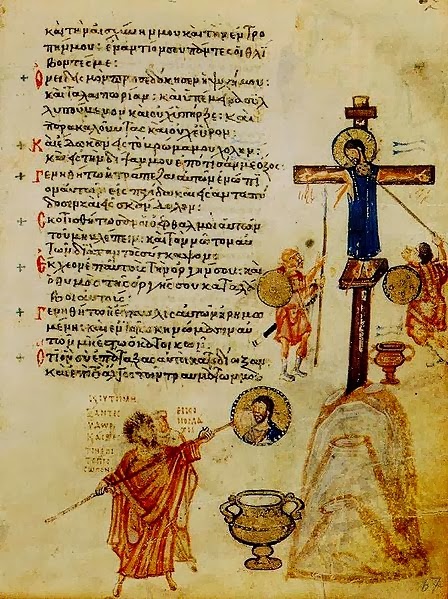 καὶ τὴν αἰσχύνην μου καὶ τὴν ἐντρο
πήν μου· ἐναντίον σου πάντες οἱ θλί
βοντές με:
Ὀνειδισμὸν προσεδόκησεν ἡ ψυχή μου·
καὶ ταλαιπωρίαν· καὶ ὑπέμεινα συλ
λυπούμενον καὶ οὐχ ὑπῆρξε· καὶ
παρακαλοῦντας καὶ οὐχ εὗρον·
Καὶ ἔδωκαν εἰς τὸ βρῶμά μου χολήν·
καὶ εἰς τὴν δίψαν μου ἐπότισάν με ὄξος·
Γενηθήτω ἡ τράπεζα αὐτῶν ἐνώπι
ον αὐτῶν εἰς παγίδα καὶ εἰς ἀνταπό
δοσιν καὶ εἰς σκάνδαλον:
Σκοτισθήτωσαν οἱ ὀφθαλμοὶ αὐτῶν
τοῦ μὴ βλέπειν· καὶ τὸν νῶτον αὐ
τῶν διαπαντὸς σύγκαμψον·
Ἔκχεον ἐπ' αὐτοὺς τὴν ὀργήν σου· καὶ
ὁ θυμὸς τῆς ὀργῆς σου καταλά
βοι αὐτούς:
Γενηθήτω ἡ ἔπαυλις αὐτῶν ἠρημω
μένη· καὶ ἐν τοῖς σκηνώμασιν αὐ
τῶν μὴ ἔστω ὁ κατοικῶν·
Ὅτι ὃν σὺ ἐπάταξας αὐτοὶ κατεδίωξαν·
καὶ ἐπὶ τὸ ἄλγος τῶν τραυμάτων μου
67